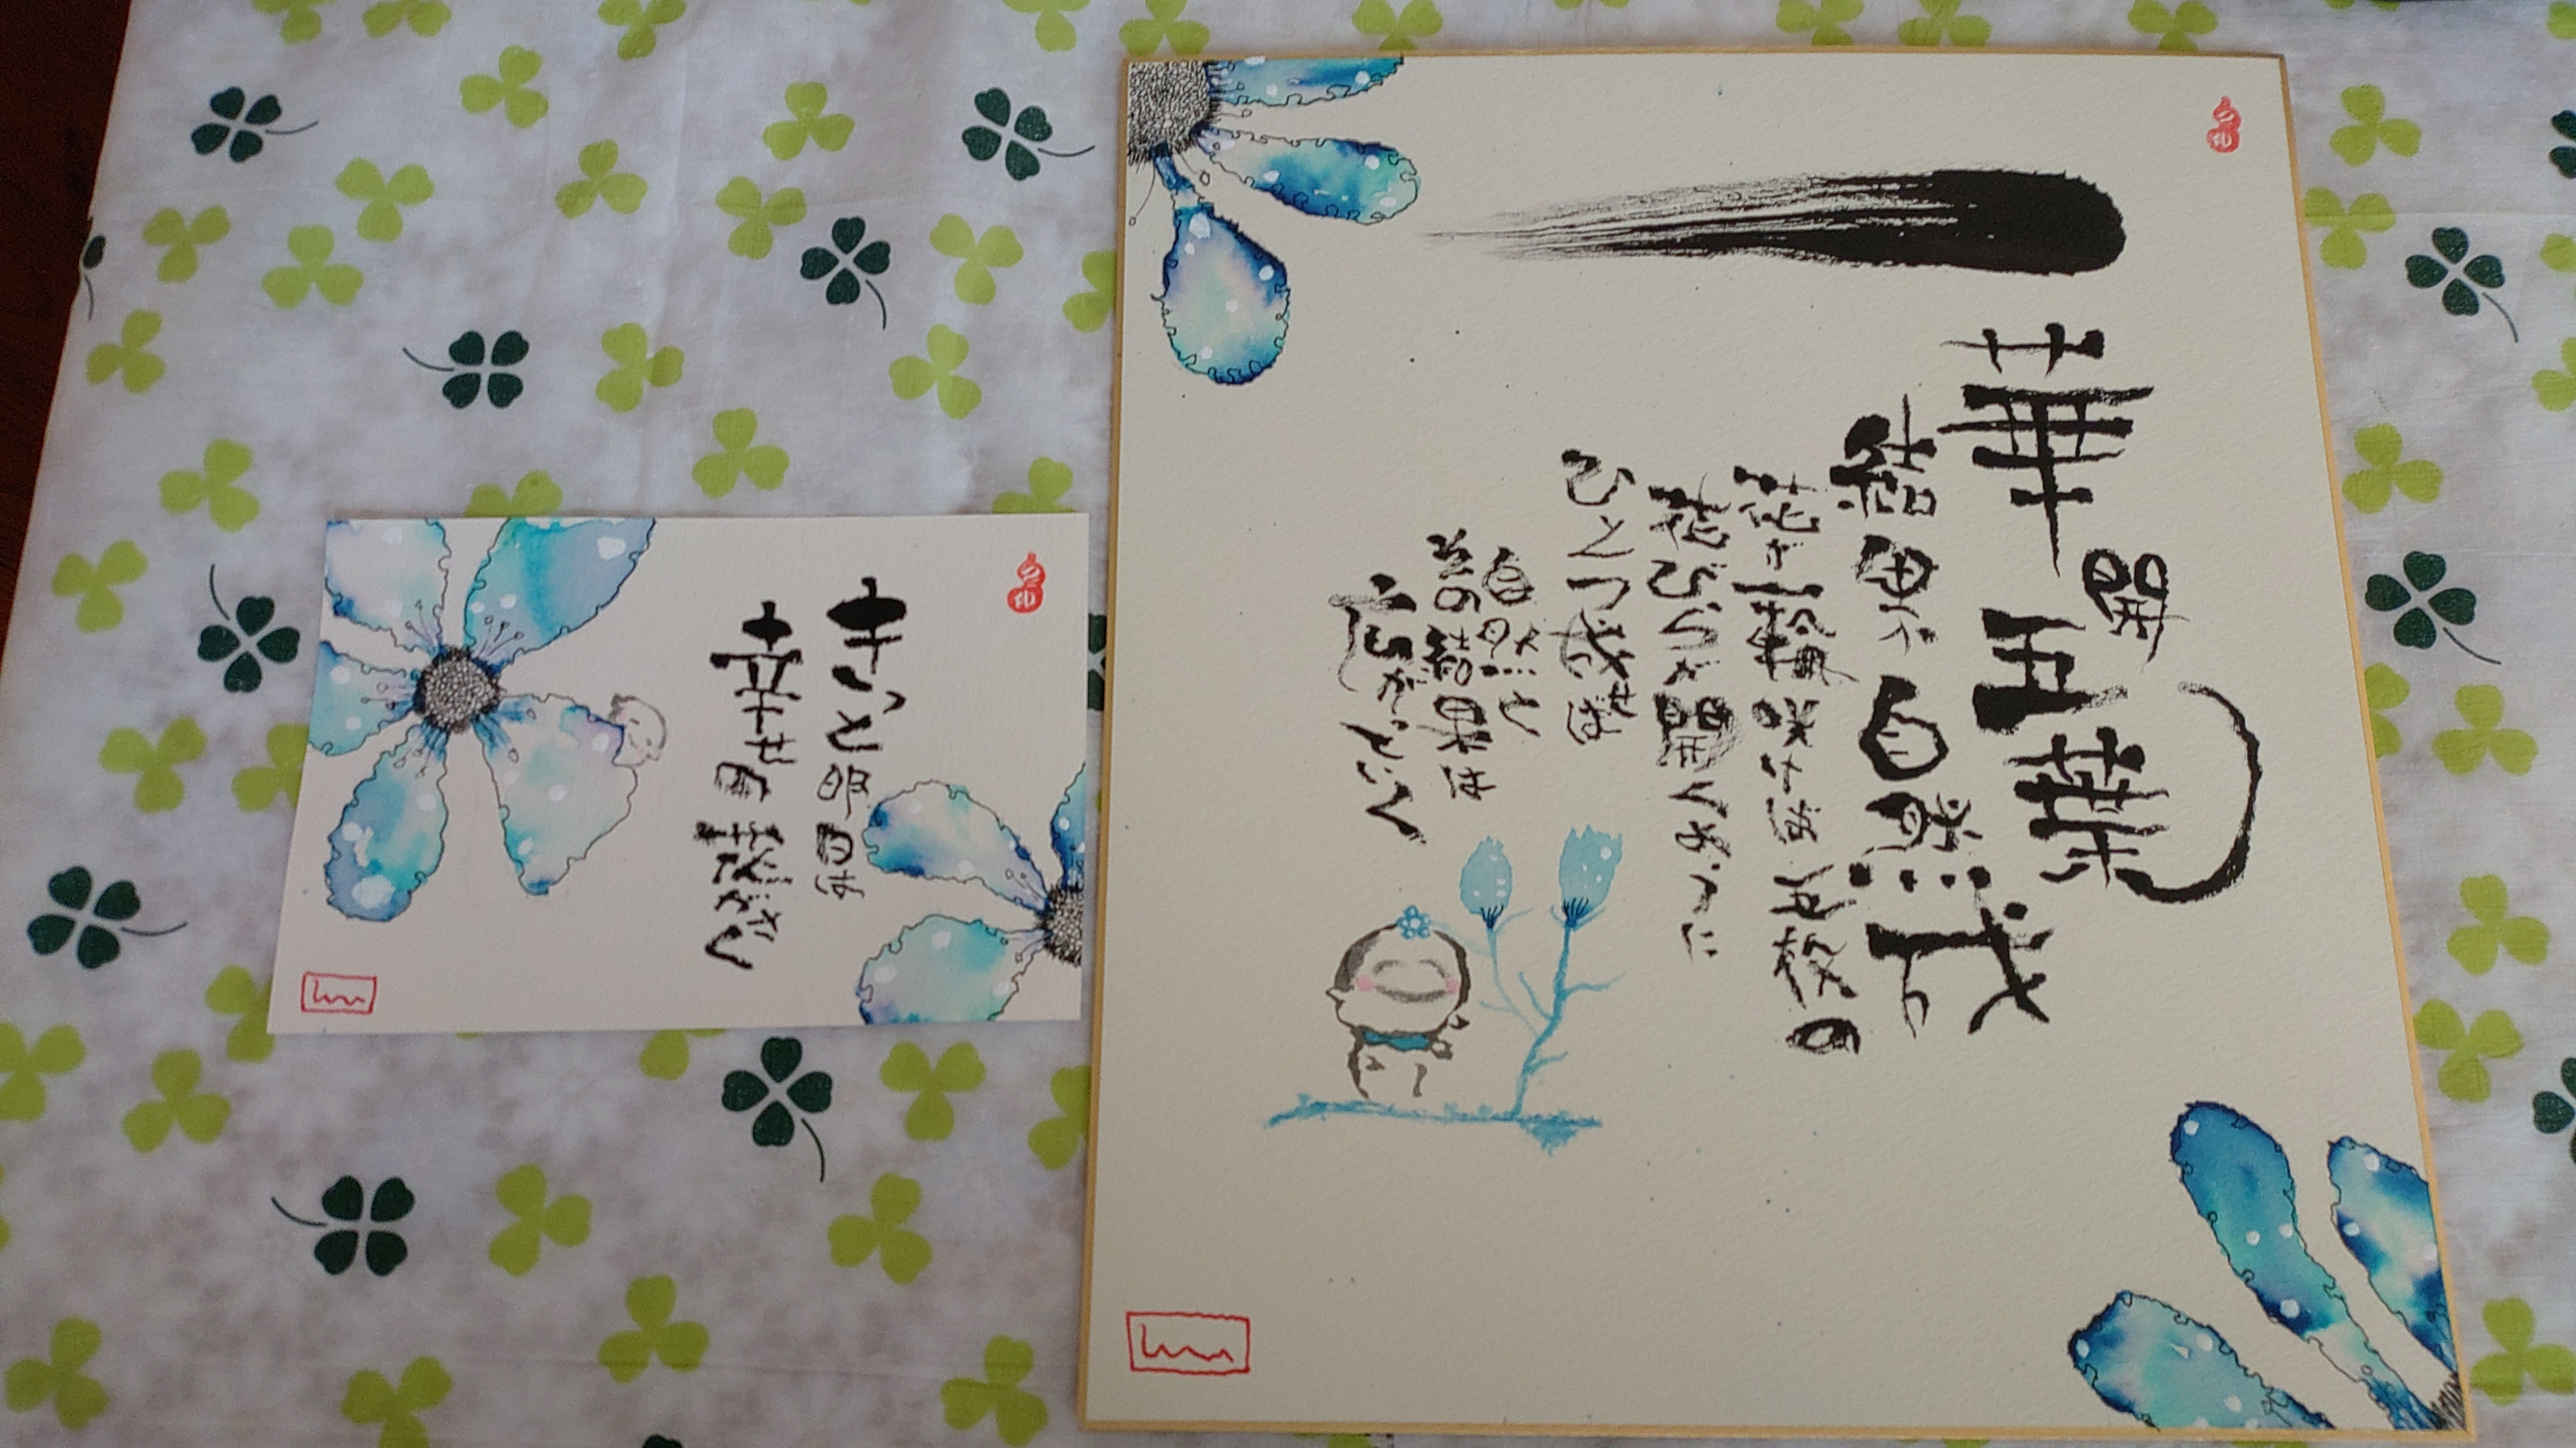 一華開五葉
結果自然成
花が一輪咲けば五枚の
花びらが開くように
ひとつ成せば
自然と
その結果は
広がっていく
きっと明日は
幸せの花がさく